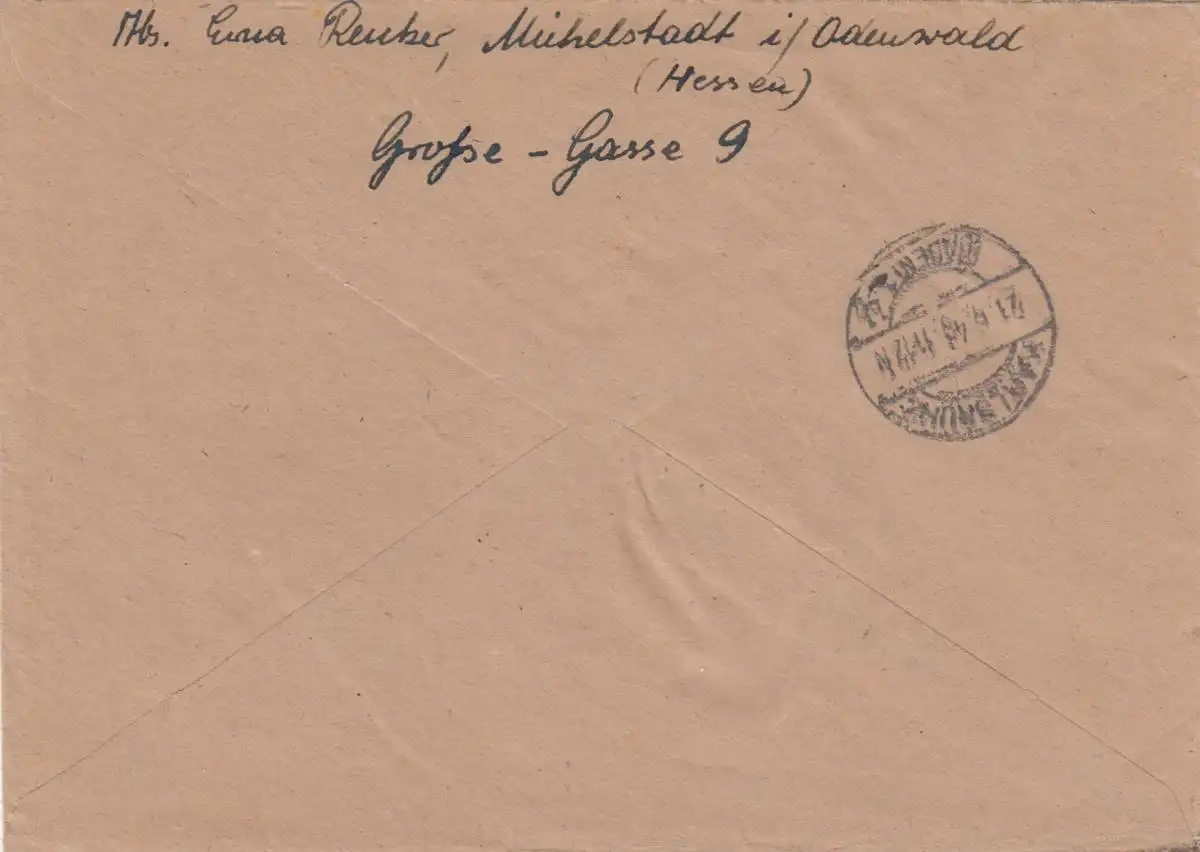 Abs. Erna Reuker, Michelstadt i/Odenwald
(Hessen)
Große - Gasse 9
KARLSRUHE
21. 4. 11-12 N
(BADEN)